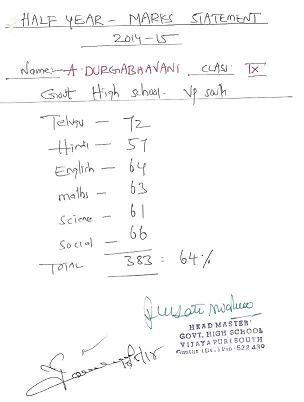 HALF YEAR - MARKS STATEMENT
2014-15
Name:- A DURGABHAVANI CLASS: IX
Govt High school- Vp south
Telugu - 72
Hindi - 57
English - 64
maths - 63
Science - 61
Social - 66
TOTAL 383 = 64%
HEAD MASTER
GOVT. HIGH SCHOOL
VIJAYAPURI SOUTH
522 439